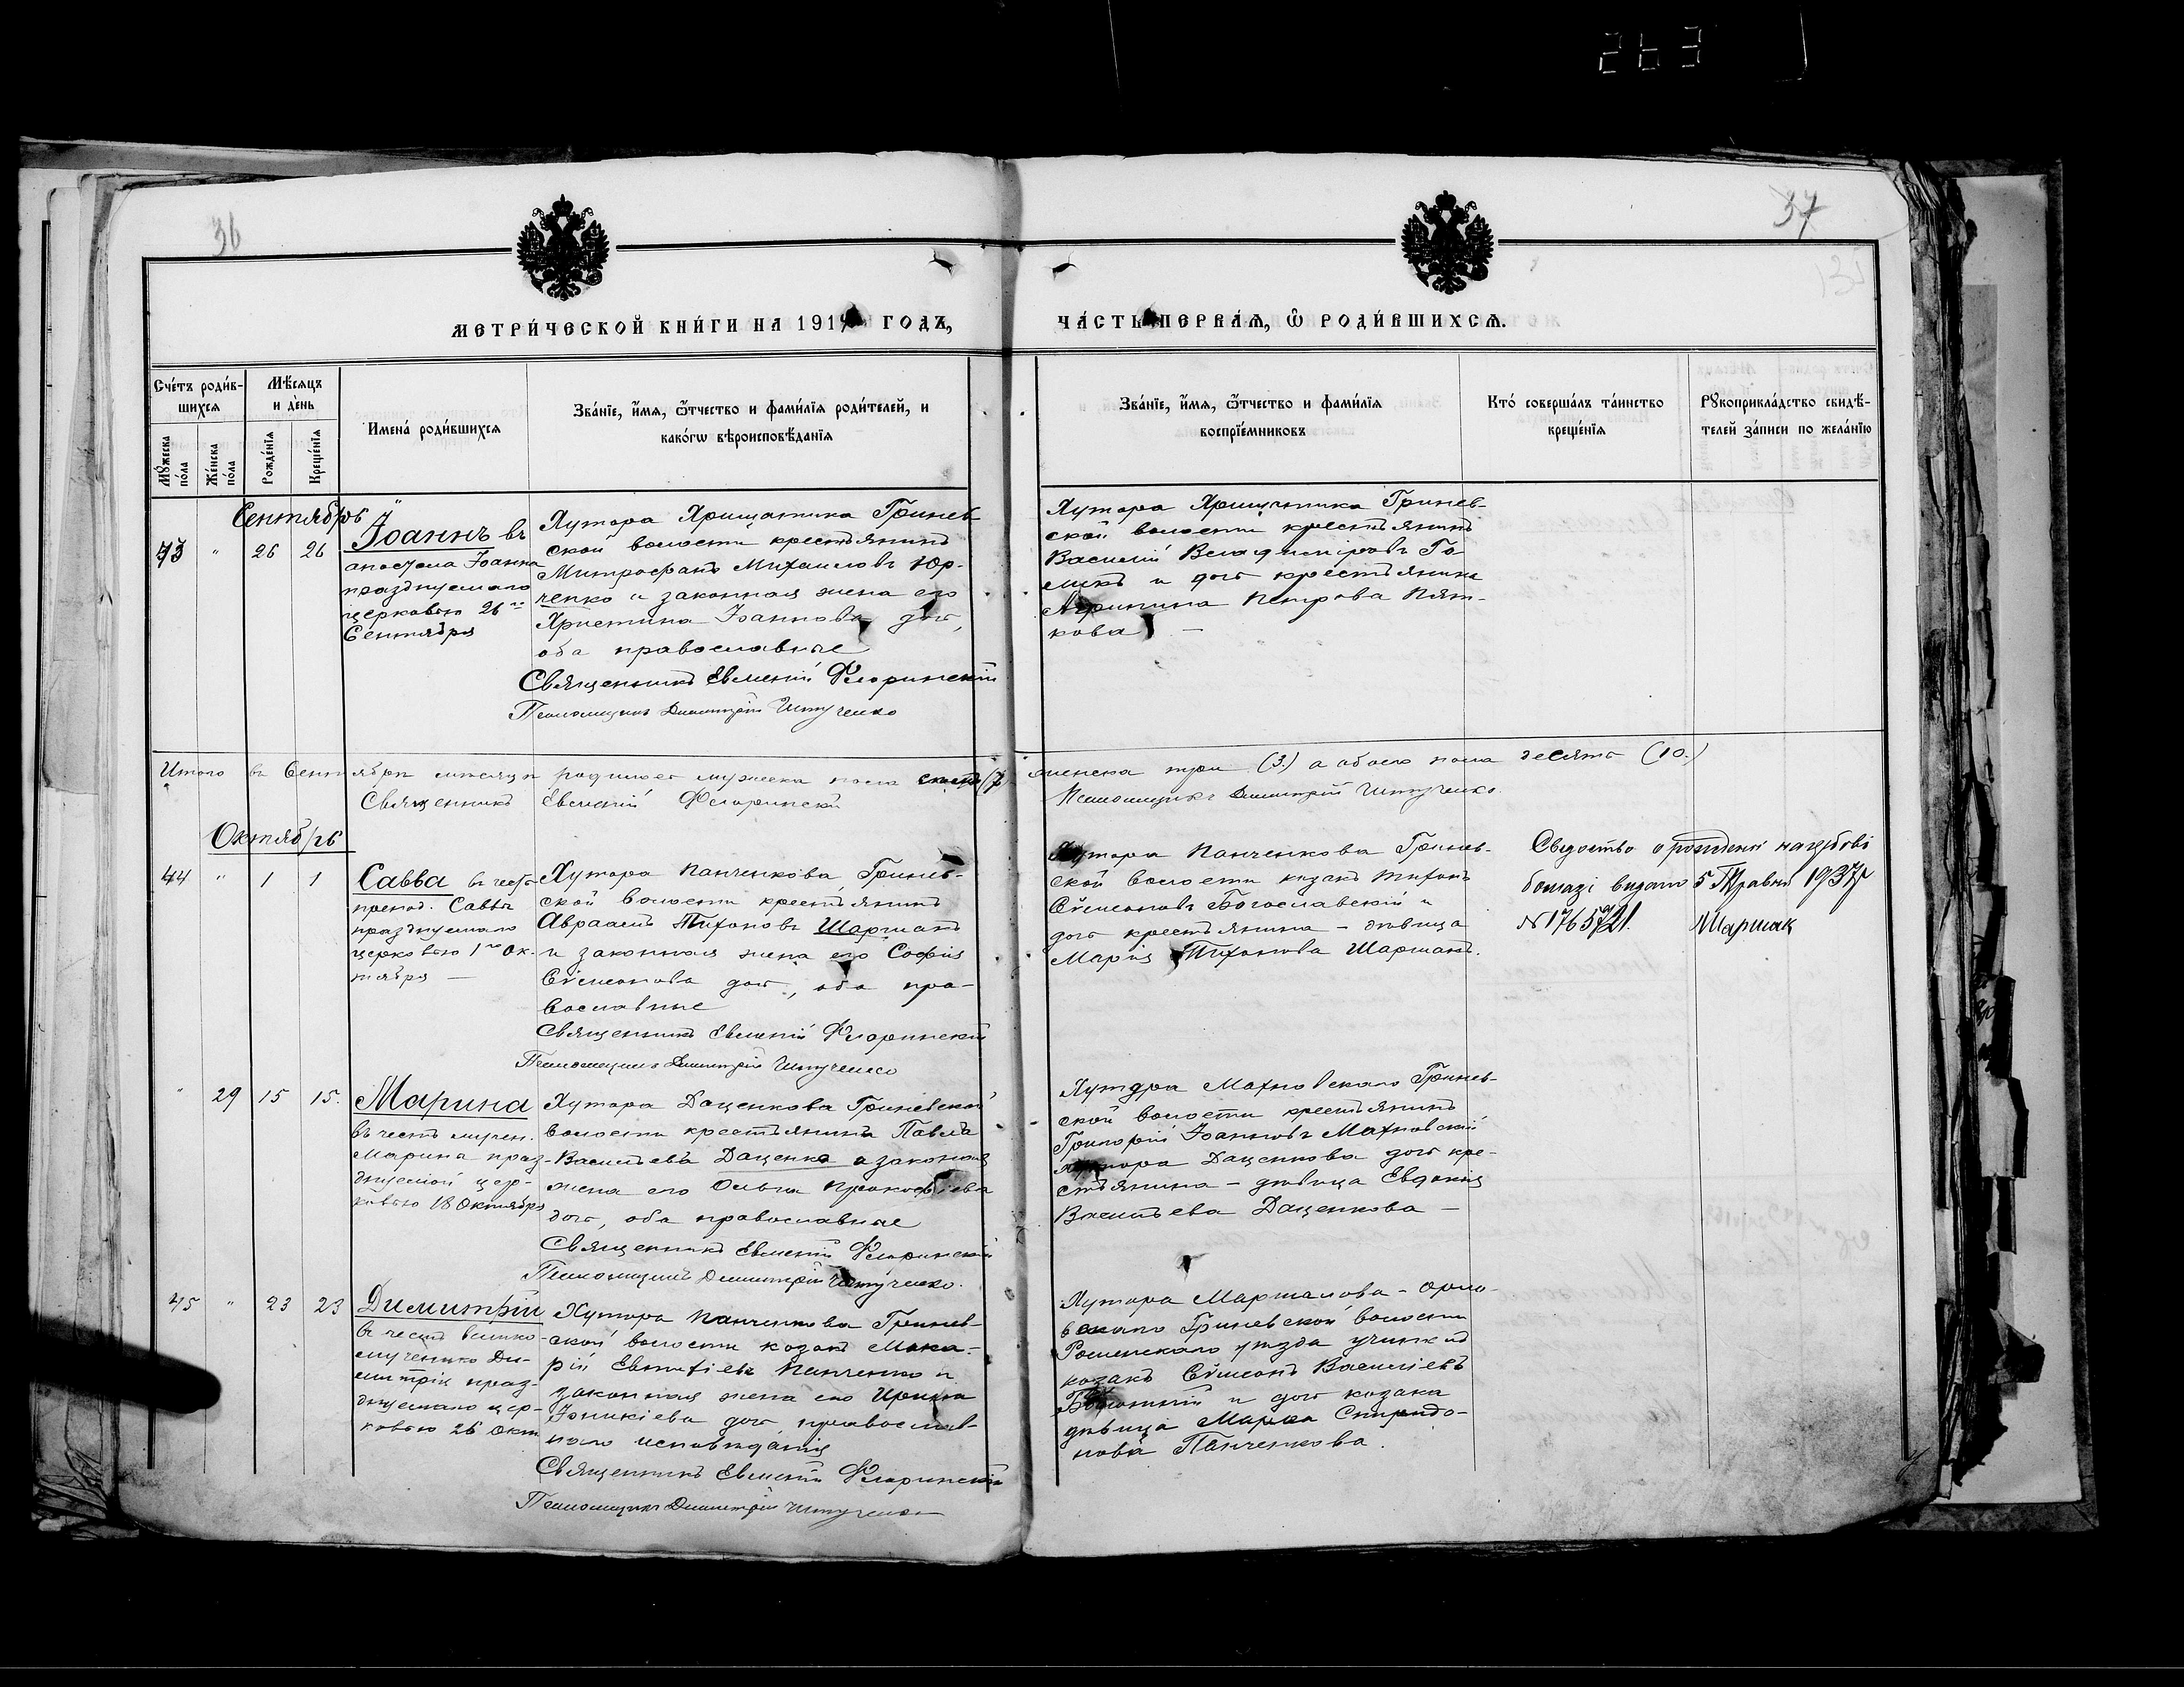 263
36
37
МЕТРИ́ЧЕСКОЙ КНИ́ГИ НА 191 ГОДЪ,
ЧА́СТЬ ПЕРВА́Я, Ѡ҆ РОДИ́ВШИХСѦ.
Сче́тъ роди́в-
шихсѧ
Мѣ́сѧцъ
и де́нь
Имена̀ роди́вшихсѧ
Зва́нїе, и҆́мѧ, ѻ҆́тчество и фами́лїѧ роди́телей, и
како́гѡ вѣроисповѣ́данїѧ
Мꙋ́жеска
по́ла
Же́нска
по́ла
Рожде́нїѧ
Креще́нїѧ
Зва́нїе, и҆́мѧ, ѻ҆́тчество и фами́лїѧ
воспрїе́мниковъ
Кто̀ соверша́лъ та́инство
креще́нїѧ
Рꙋкоприкла́дство свидѣ́-
телей за́писи по жела́нїю
Сентябрь
43 " 26 26
Іоаннъ въ
апостола Іоанна
празднуемаго
церковью 26го
Сентября
Хутора Хрищатика Гринев-
ской волости крестьянинъ
Митрофанъ Михаиловъ Юр-
ченко и законная жена его
Христина Іоаннова доч,
оба православные
Священникъ Евменій Флоринскій
Псаломщикъ Димитрій Штученко
Хутора Хрищатика Гринев-
ской волости крестьянинъ
Василій Владиміровъ Го-
ликъ и дочь крестьянина
Агрипина Петрова Пят-
кова —
Итого въ Сентябрѣ мѣсяцѣ родилось мужеска пола семь (7)
женска три (3.) а обоего пола десять (10.)
Священникъ Евменій Флоринскій
Псаломщикъ Димитрій Штученко.
Октябрь
44 " 1 1
Савва въ честь
препод. Саввы
празднуемаго
церковью 1го Ок-
тября —
Хутора Панченкова, Гринев-
ской волости крестьянинъ
Авраамъ Тихоновъ Шаршанъ
и законная жена его Софія
Сѵмеонова доч., оба пра-
вославные
Священникъ Евменій Флоринскій
Псаломщикъ Димитрій Штученко
Хутора Панченкова Гринев-
ской волости козакъ Тихонъ
Сѵмеоновъ Богославскій и
дочь крестьянина – дѣвица
Марія Тихонова Шаршанъ.
Свідоство о рождени на гербові
бомазі видано 5 Травня 1937р
N 176572/21. Маршак
" 29 15 15.
Марина
въ честь мучен.
Марина праз-
днуемой цер-
ковью 18 Октября
Хутора Даценкова Гриневской
волости крестьянинъ Павелъ
Васильевъ Даценко и законная
жена его Ольга Прокофіева
доч, оба православные
Священникъ Евменій Флоринскій
Псаломщикъ Димитрій Штученко.
Хутора Махновскаго Гринев-
ской волости крестьянинъ
Григорій Іоанновъ Махновскій
хутора Даценкова дочь кре-
стьянина – дѣвица Евдокія
Васильева Даценкова —
45 " 23 23
Димитрій
въ честь велико-
мученика Ди-
митрія праз-
днуемаго цер-
ковью 26 Окт
Хутора Панченкова Гринев-
ской волости козакъ Мака-
рій Евтихіевъ Панченко и
законная жена его Ирина
Іоникіева доч, православ-
наго исповѣданія
Священникъ Евменій Флоринскій
Псаломщикъ Димитрій Штученко
Хутора Маршалова – Орло-
вскаго Гриневской волости
Роменскаго уѣзда
козакъ Сѵмеонъ Василіевъ
и дочь козака
дѣвица Марія Спиридо-
нова Панченкова.